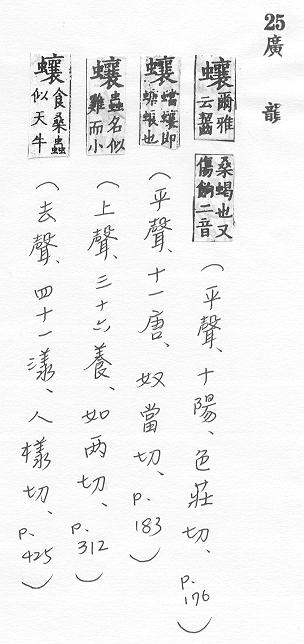 25 廣 韻
蠰爾雅云齧桑蝎也又傷餉二音(平聲、十陽、色莊切、p.176)
蠰蟷蠰即螗蜋也(平聲、十一唐、奴當切、p.183)
蠰蟲名似雞而小(上聲、三十六養、如兩切、p.312)
蠰食桑蟲似天牛(去聲、四十一漾、人樣切、p.425)